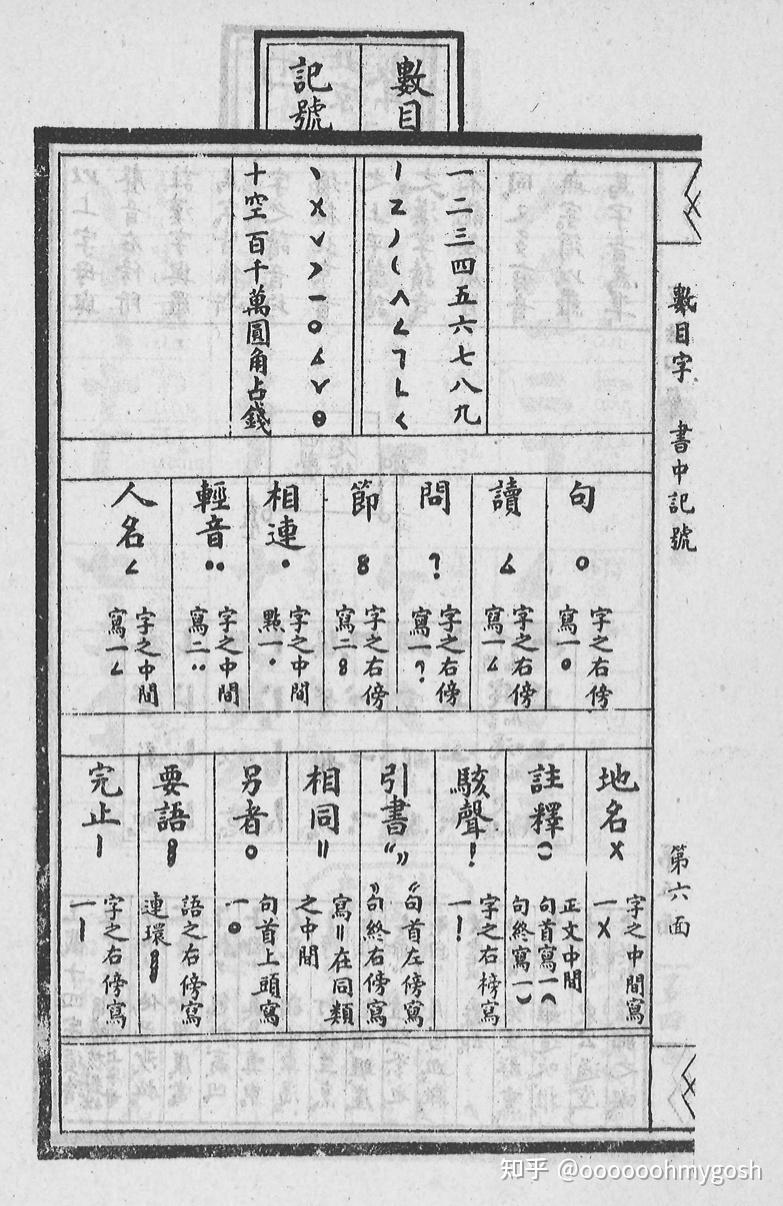 數目
記號
數目字 書中記號
第六面
一二三四五六七八九
十空百千萬圓角占錢
句 ○
字之右傍
寫一○
讀
字之右傍
寫一
問 ?
字之右傍
寫一?
節 8
字之右傍
寫二8
相連 •
字之中間
點一•
輕音 ••
字之中間
寫二••
人名 ㄥ
字之中間
寫一ㄥ
地名 ㄨ
字之中間寫
一ㄨ
註釋 ()
正文中間
句首寫一(
句終寫一)
駭聲 !
字之右榜寫
一!
引書 “”
“句首左傍寫
”句終右傍寫
相同 ||
寫||在同類
之中間
另者 ○
句首上頭寫
一○
要語
語之右傍寫
連環
完止 |
字之右傍寫
一|
知乎 @oooooohmygosh